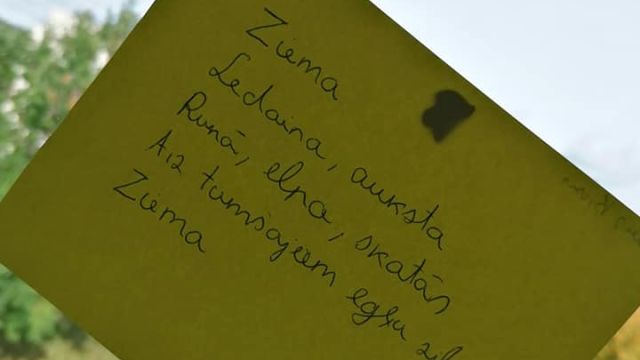 Ziema
Ledaina, auksta
Runā, elpo, skatās
Aiz tumšajiem egļu
Ziema